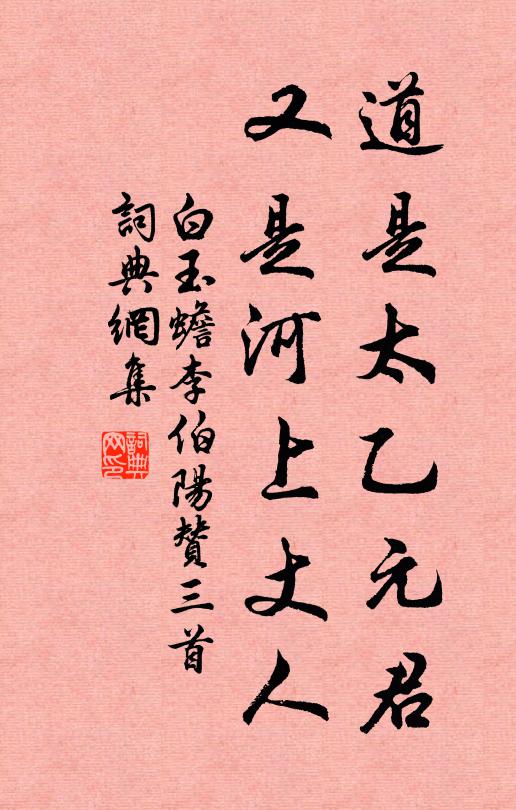 道是太乙元君
又是河上丈人
白玉蟾李伯陽贊三首
詞典網集
詞典網印